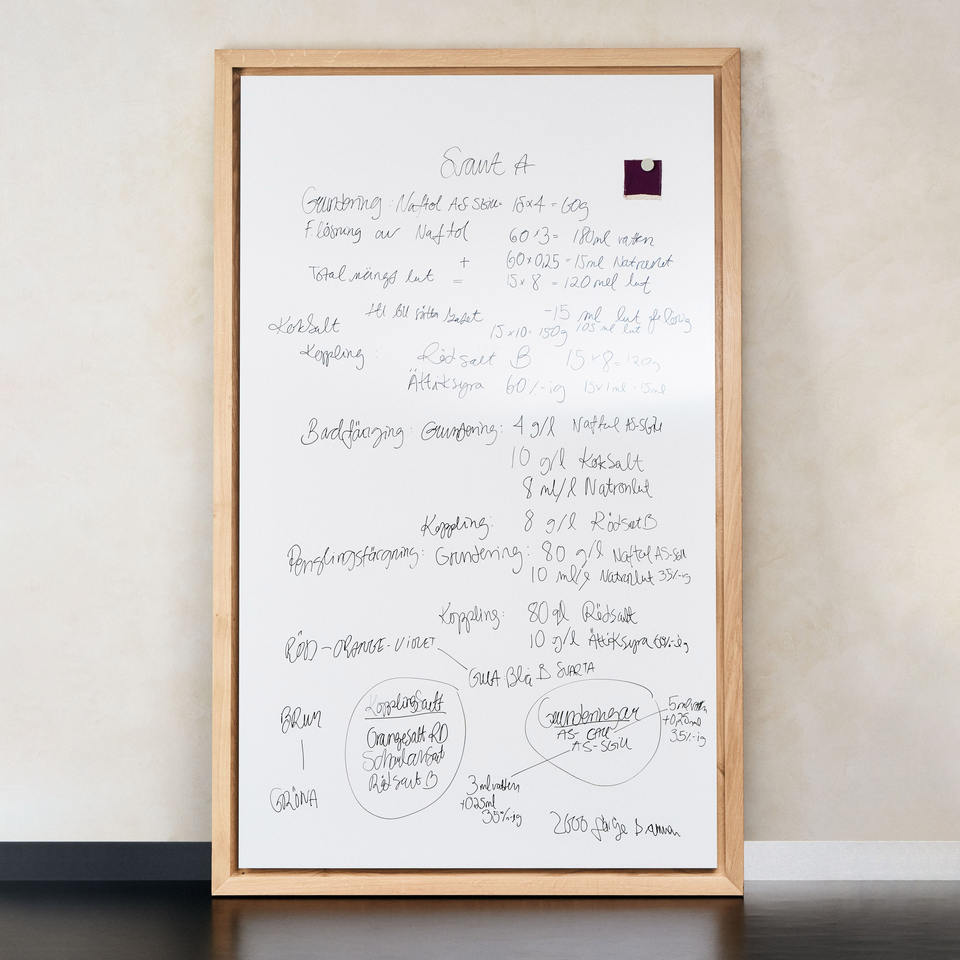 Svart A
Grundering: Naftol AS SGill= 15x4 = 60g
F. lösning av Naftol 60x3= 180ml vatten
+ 60x0,25 = 15ml Natronlut
Total mängd lut = 15x8 = 120ml lut
-15 ml lut
105 ml lut
Koksalt 15x10= 150g
Koppling: Rödsalt B 15x8= 120g
Ättiksyra 60%-ig 15x1ml = 15ml
Badfärgning: Grundering: 4 g/l Naftol AS-SGill
10 g/l Koksalt
8 ml/l Natronlut
Koppling: 8 g/l Rödsalt B
Penslingsfärgning: Grundering: 80 g/l Naftol AS-SGill
10 ml/l Natronlut 35%-ig
Koppling: 80 g/l Rödsalt
10 g/l Ättiksyra 60%-ig
RÖD-ORANGE-VIOLET
GULA Blå B SVARTA
BRUN
GRÖNA
Kopplingsalt
Orangesalt RD
Rödsalt B
Grunderingar
AS-
AS-SGill
5ml vatten
+0,25ml
35%-ig
3ml vatten
+025ml
35%-ig
2000